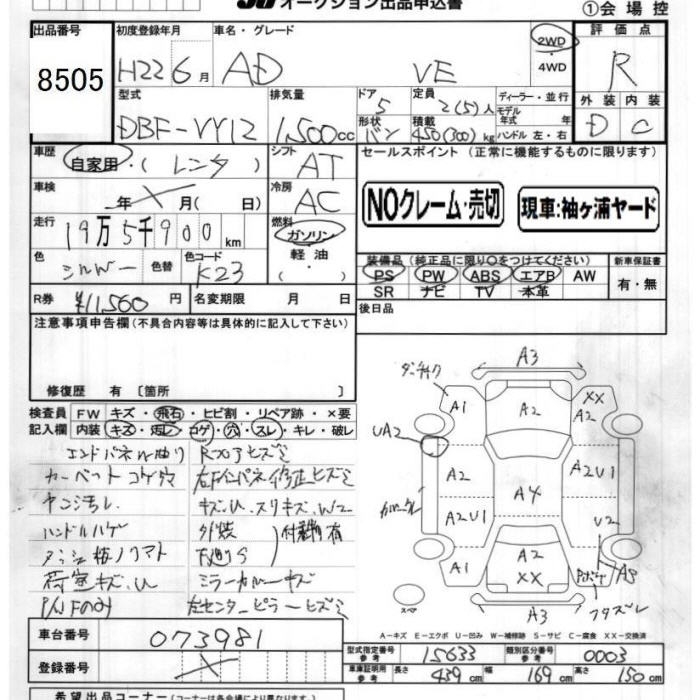 オークション出品申込書
①会場控
出品番号 初度登録年月 車名・グレード 2WD 4WD 評価点
8505 H22 6月 AD VE R
型式 排気量 ドア 定員 ディーラー・並行 外装 内装
DBF-VY12 1,500cc 5 2(5)人 モデル年式 年 D C
形状 バン 積載 450(300)kg ハンドル 左・右
車歴 自家用・(レンタ) シフト AT セールスポイント (正常に機能するものに限ります)
車検 年 月( 日) 冷房 AC NOクレーム・売切 現車:袖ヶ浦ヤード
走行 19万5千900km 燃料 ガソリン 軽油 ・( )
色 シルバー 色替 色コード K23
装備品(純正品に限り○をつけてください) 新車保証書
PS PW ABS エアB AW 有・無
SR ナビ TV 本革
R券 ¥11,560円 名変期限 月 日 後日品
注意事項申告欄(不具合内容等は具体的に記入して下さい)
修復歴 有 〔箇所 〕
検査員 FW キズ・飛石・ヒビ割・リペア跡・×要
記入欄 内装 キズ・汚レ・コゲ・穴・スレ・キレ・破レ
エンドパネル曲り Rフロアヒズミ
カーペットコゲ穴
ヤニ汚レ キズU、スリキズ、W2
ハンドルハゲ 外装 付着物有
荷室キズ、U ミラーカバーキズ
P/Wドのみ 左センターピラーヒズミ
A3
A1 A2 XX A2
UA2
A2 A4 A2U1
A2U1 U2
A1 A2 XX A3
A3
スペア
A-キズ E-エクボ U-凹み W-補修跡 S-サビ C-腐食 XX-交換済
車台番号 073981
登録番号
型式指定番号 参考 15633 類別区分番号 参考 0003
車庫証明用 参考 長さ 439cm 幅 169cm 高さ 150cm
希望出品コーナー(コーナーは各会場により異なります)